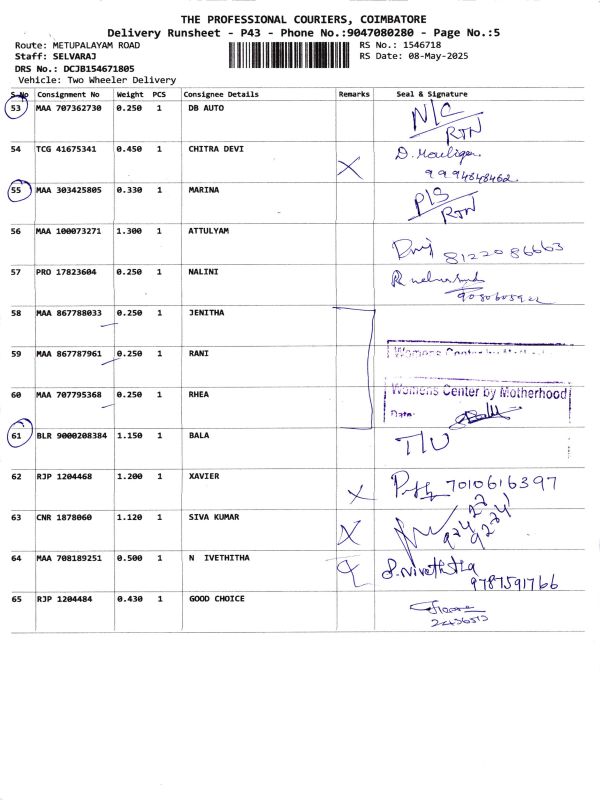 THE PROFESSIONAL COURIERS, COIMBATORE
Delivery Runsheet - P43 - Phone No.:9047080280 - Page No.:5
Route: METUPALAYAM ROAD RS No.: 1546718
Staff: SELVARAJ RS Date: 08-May-2025
DRS No.: DCJB154671805
Vehicle: Two Wheeler Delivery
S.No Consignment No Weight PCS Consignee Details Remarks Seal & Signature
53 MAA 707362730 0.250 1 DB AUTO N/C RTN
54 TCG 41675341 0.450 1 CHITRA DEVI X D.
9994848462
55 MAA 303425805 0.330 1 MARINA P/S RTN
56 MAA 100073271 1.300 1 ATTULYAM 8122086663
57 PRO 17823604 0.250 1 NALINI
58 MAA 867788033 0.250 1 JENITHA
59 MAA 867787961 0.250 1 RANI Womens Center by
60 MAA 707795368 0.250 1 RHEA Womens Center by Motherhood
Date:
61 BLR 9000208384 1.150 1 BALA T/U
62 RJP 1204468 1.200 1 XAVIER X 7010616397
63 CNR 1878060 1.120 1 SIVA KUMAR X
64 MAA 708189251 0.500 1 N IVETHITHA
9787591766
65 RJP 1204484 0.430 1 GOOD CHOICE